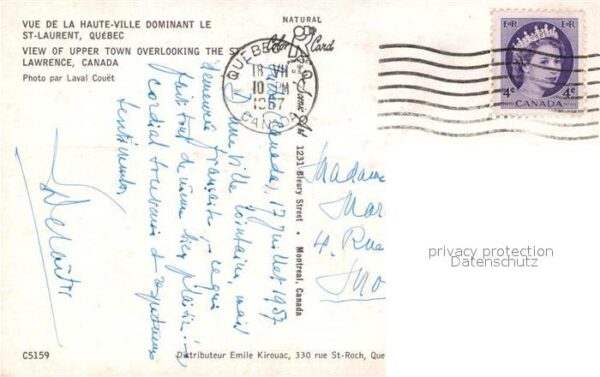 VUE DE LA HAUTE-VILLE DOMINANT LE
ST-LAURENT, QUÉBEC
VIEW OF UPPER TOWN OVERLOOKING THE ST.
LAWRENCE, CANADA
Photo par Laval Couët
NATURAL
Color Card
1231 Bleury Street • Montreal, Canada
QUÉBEC P.Q.
18 VII
10 PM
1957
CANADA
E II R E II R
4c CANADA 4c
Canada, 17 Juillet 1957
D'une ville lointaine, mais
demeurée française, ce qui
fait tout de même bien plaisir :
cordial souvenir et respectueux
sentiments
Madame
Mar
4. Rue
privacy protection
Datenschutz
C5159
Distributeur Emile Kirouac, 330 rue St-Roch, Que